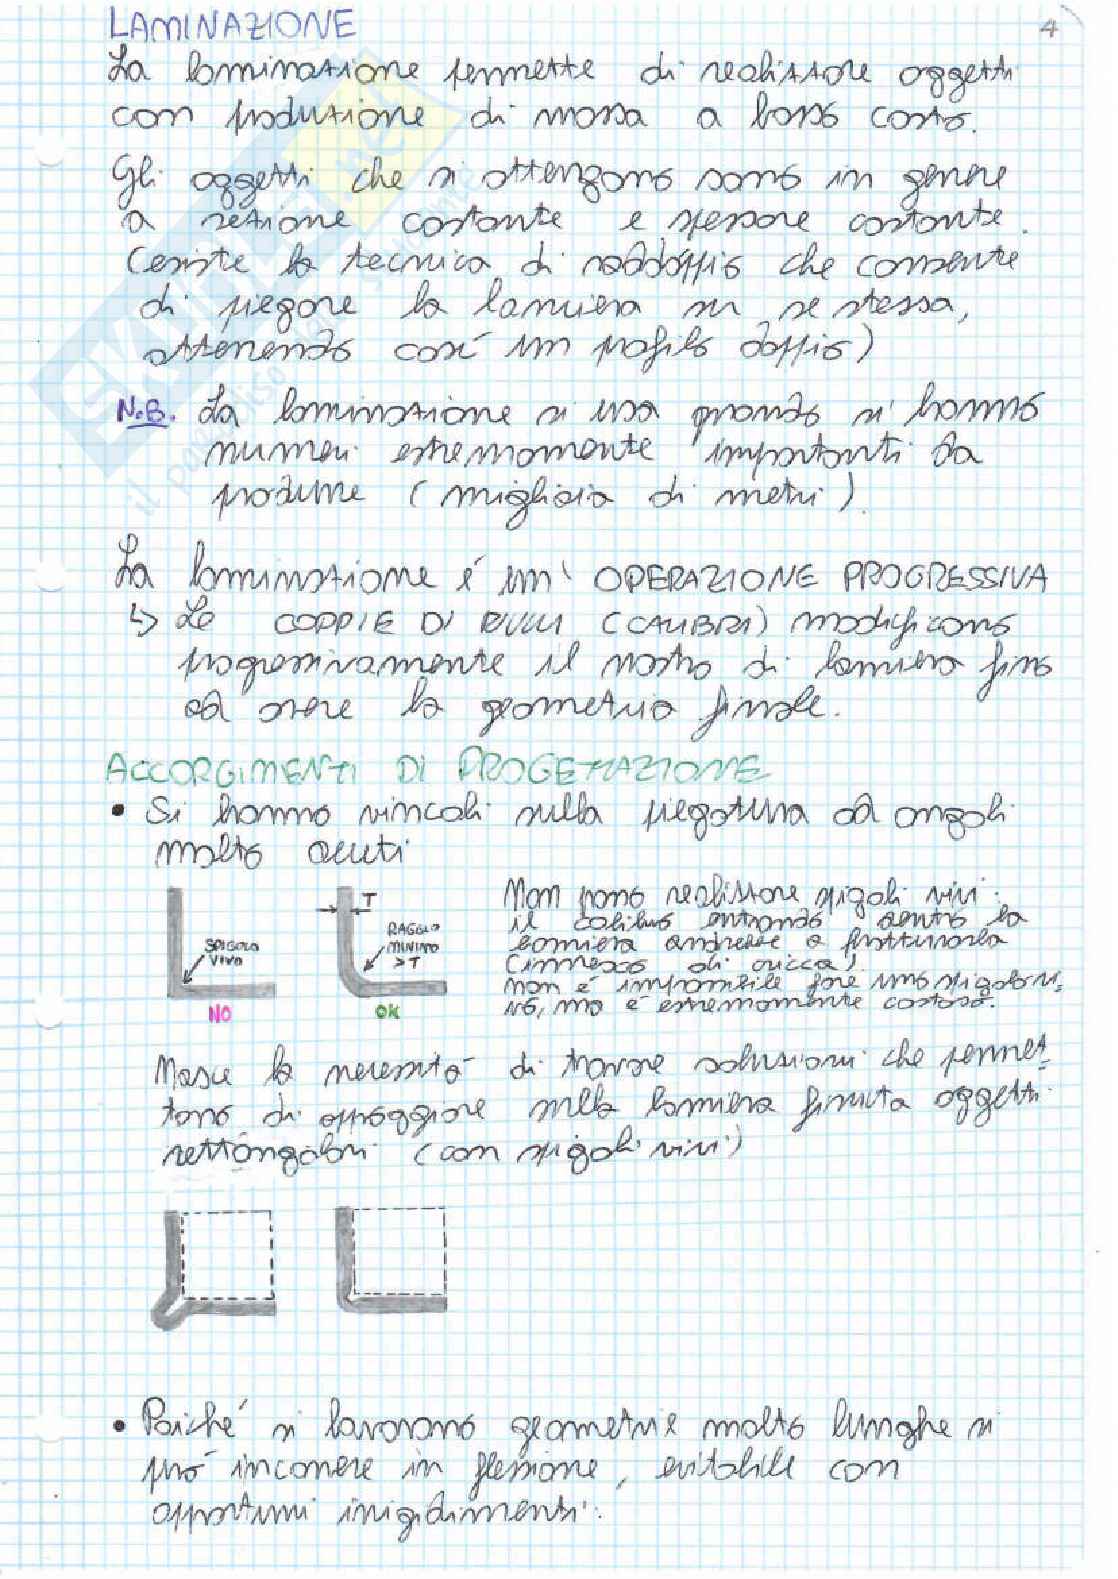 LAMINAZIONE
4
La laminazione permette di realizzare oggetti
con produzione di massa a basso costo.
Gli oggetti che si ottengono sono in genere
a sezione costante e spessore costante.
(esiste la tecnica di raddoppio che consente
di piegare la lamiera su se stessa,
ottenendo così un profilo doppio)
N.B. La laminazione si usa quando si hanno
numeri estremamente importanti da
produrre (migliaia di metri).
La laminazione é un' OPERAZIONE PROGRESSIVA
↳ Le COPPIE DI RULLI (CALIBRI) modificano
progressivamente il nastro di lamiera fino
ad avere la geometria finale.
ACCORGIMENTI DI PROGETTAZIONE
• Si hanno vincoli sulla piegatura ad angoli
molto acuti
SPIGOLO
VIVO
NO
T
RAGGIO
MINIMO
>T
OK
Non posso realizzare spigoli vivi:
il calibro entrando dentro la
lamiera andrebbe a fratturarla
(innesco di cricca).
non è impossibile fare uno spigolo vi_
vo, ma è estremamente costoso.
Nasce la necessità di trovare soluzioni che permet_
tano di appoggiare sulla lamiera finita oggetti
rettangolari (con spigoli vivi)
• Poiché si lavorano geometrie molto lunghe si
può incorrere in flessione, evitabile con
opportuni irrigidimenti.